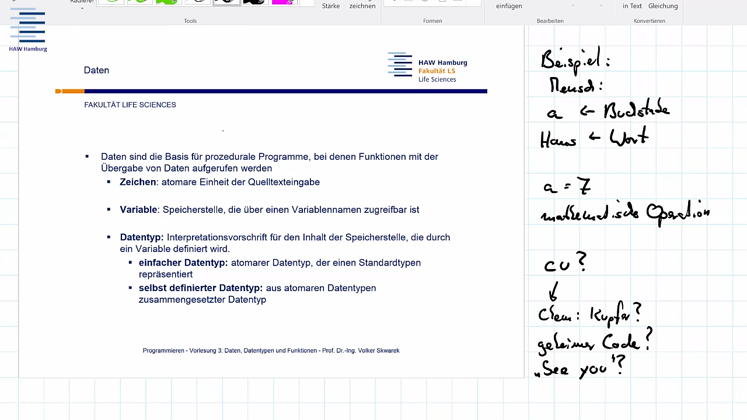 Radierer
Stärke
zeichnen
einfügen
in Text
Gleichung
Tools
Formen
Bearbeiten
Konvertieren
HAW Hamburg
Daten
HAW Hamburg
Fakultät LS
Life Sciences
FAKULTÄT LIFE SCIENCES
Daten sind die Basis für prozedurale Programme, bei denen Funktionen mit der
Übergabe von Daten aufgerufen werden
Zeichen: atomare Einheit der Quelltexteingabe
Variable: Speicherstelle, die über einen Variablennamen zugreifbar ist
Datentyp: Interpretationsvorschrift für den Inhalt der Speicherstelle, die durch
ein Variable definiert wird.
einfacher Datentyp: atomarer Datentyp, der einen Standardtypen
repräsentiert
selbst definierter Datentyp: aus atomaren Datentypen
zusammengesetzter Datentyp
Programmieren - Vorlesung 3: Daten, Datentypen und Funktionen - Prof. Dr.-Ing. Volker Skwarek
Beispiel:
Mensch:
a ← Buchstabe
Haus ← Wort
a = 7
mathematische Operation
cu?
↓
Chem: Kupfer?
geheimer Code?
„See you"?